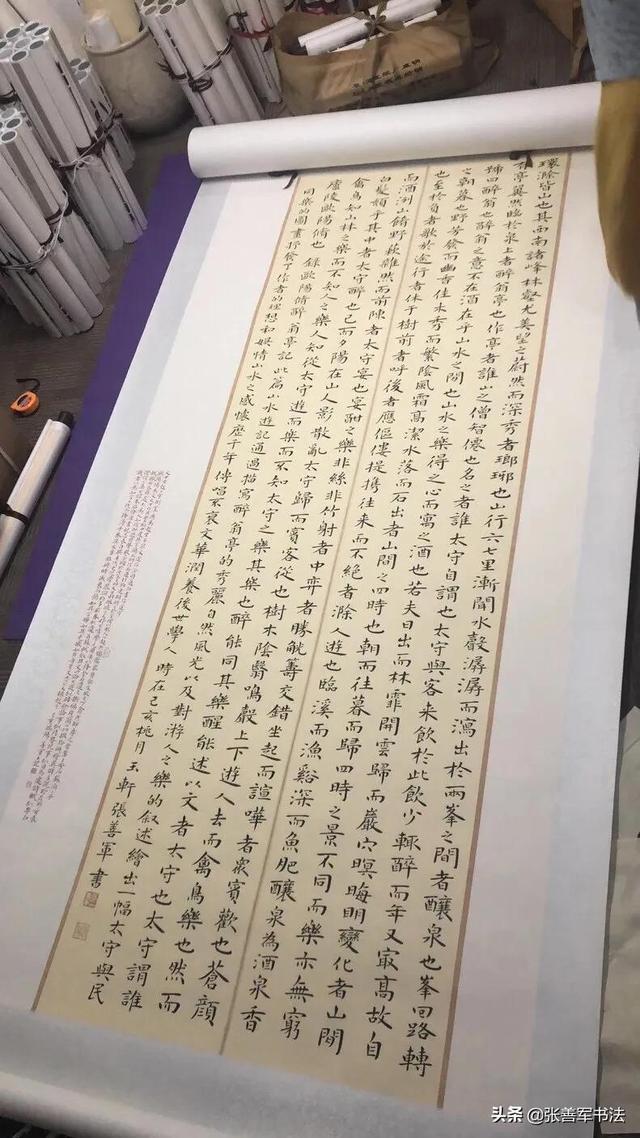 環滁皆山也其西南諸峰林壑尤美望之蔚然而深秀者瑯琊也山行六七里漸聞水聲潺潺而瀉出於兩峯之間者釀泉也峯回路轉
有亭翼然臨於泉上者醉翁亭也作亭者誰山之僧智僊也名之者誰太守自謂也太守與客來飲於此飲少輒醉而年又最高故自
號曰醉翁也醉翁之意不在酒在乎山水之間也山水之樂得之心而寓之酒也若夫日出而林霏開雲歸而巖穴暝晦明變化者山間
之朝暮也野芳發而幽香佳木秀而繁陰風霜高潔水落而石出者山間之四時也朝而往暮而歸四時之景不同而樂亦無窮
也至於負者歌於途行者休于樹前者呼後者應傴僂提携往來而不絕者滁人遊也臨溪而漁谿深而魚肥釀泉為酒泉香
而酒洌山餚野蔌雜然而前陳者太守宴也宴酣之樂非絲非竹射者中弈者勝觥籌交錯坐起而諠嘩者衆賓歡也蒼顏
白髮頹乎其中者太守醉也已而夕陽在山人影散亂太守歸而賓客從也樹木陰翳鳴聲上下遊人去而禽鳥樂也然而
禽鳥知山林之樂而不知人之樂人知從太守遊而樂而不知太守之樂其樂也醉能同其樂醒能述以文者太守也太守謂誰
廬陵歐陽脩也 錄歐陽脩醉翁亭記此篇山水遊記通過描寫醉翁亭的秀麗自然風光以及對游人之樂的叙述繪出一幅太守與民
同樂的圖畫抒發了作者的理想和娛情山水之感懷歷千年傳唱不衰文華潤養後世學人 時在己亥桃月玉軒張善軍書
头条 @张善军书法